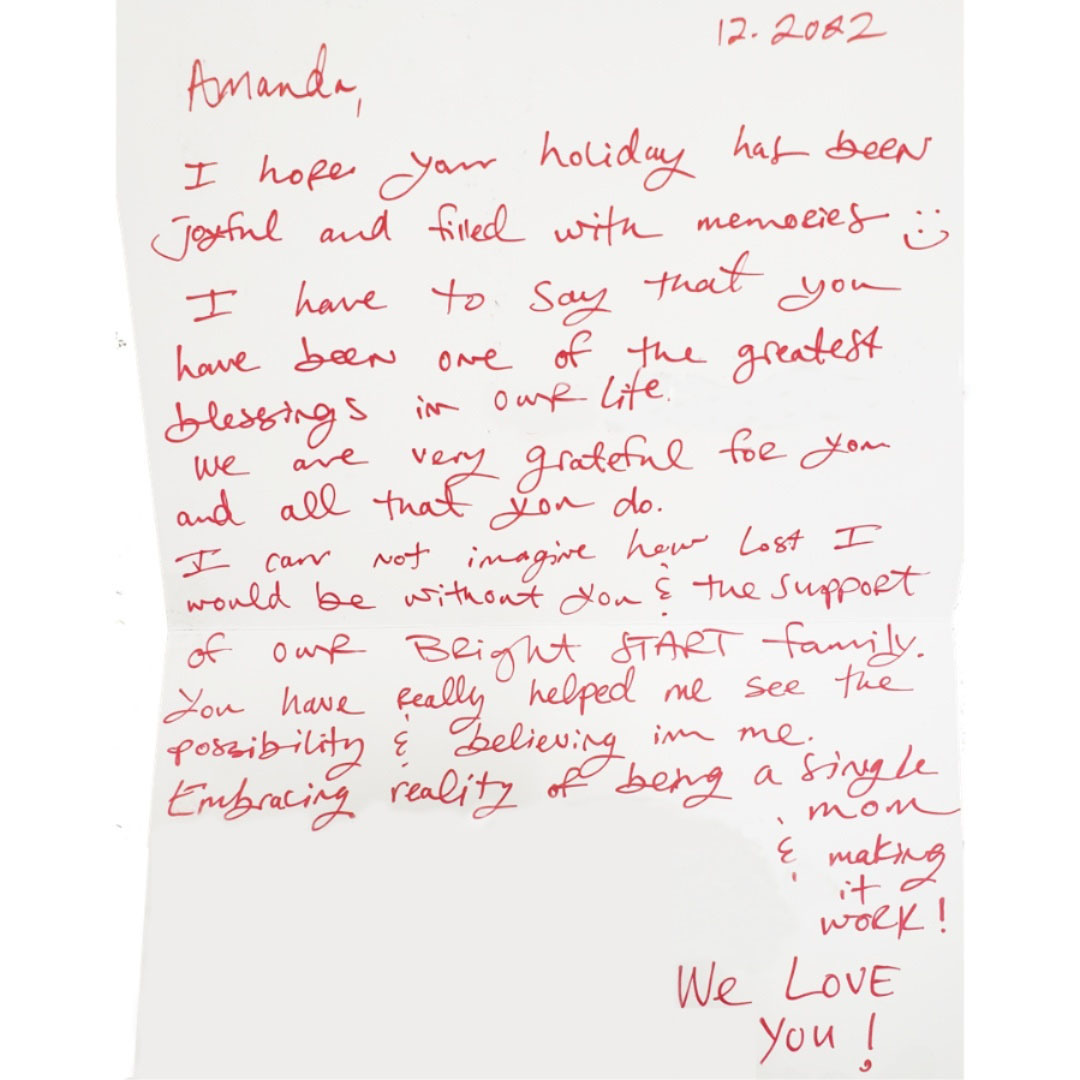 12.2022
Amanda,
I hope your holiday has been
joyful and filled with memories :)
I have to say that you
have been one of the greatest
blessings in our life.
We are very grateful for you
and all that you do.
I can not imagine how lost I
would be without you & the support
of our Bright START family.
You have really helped me see the
possibility & believing in me.
Embracing reality of being a single
mom
& making
it
work!
We Love
You!